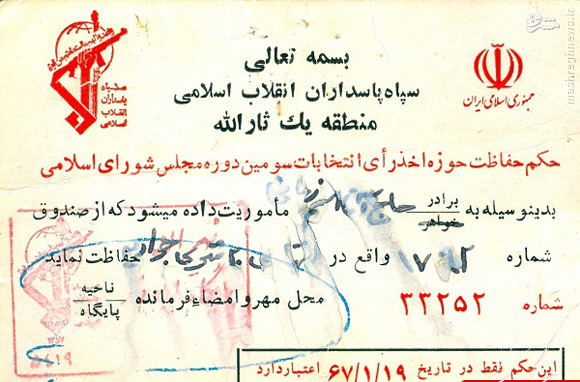 بسمه تعالی
سپاه پاسداران انقلاب اسلامی
منطقه یک ثارالله
جمهوری اسلامی ایران
سپاه
پاسداران
انقلاب
اسلامی
حکم حفاظت حوزه اخذ رأی انتخابات سومین دوره مجلس شورای اسلامی
بدینوسیله به برادر / خواهر حاج مأموریت داده میشود که از صندوق
شماره واقع در حفاظت نماید
شماره ۳۳۲۵۲ محل مهر و امضاء فرمانده ناحیه / پایگاه
این حکم فقط در تاریخ ۶۷/۱/۱۹ اعتبار دارد
۵۴۱۹
mashreghnews.ir